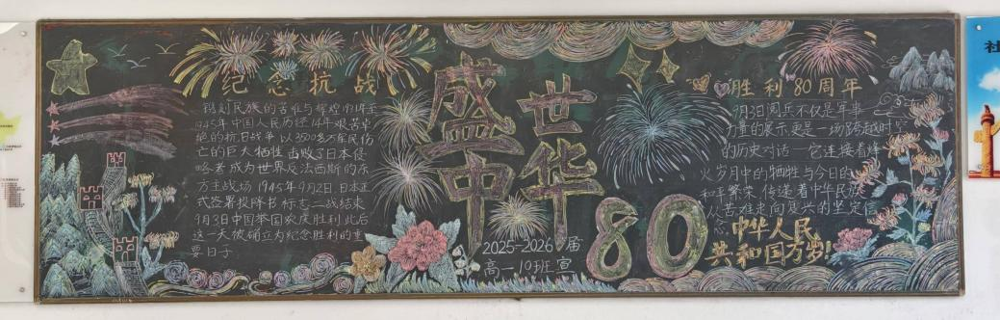 纪念抗战
民族的苦难与辉煌1931年至
1945年中国人民历经14年艰苦卓
绝的抗日战争以3500多万军民伤
亡的巨大牺牲击败了日本侵
略者成为世界反法西斯的东
方主战场1945年9月2日日本正
式签署投降书标志二战结束
9月3日中国举国欢庆胜利此后
这一天被确立为纪念胜利的重
要日子
盛世
中华
80
2025-2026届
高一10班宣
胜利80周年
9月3日阅兵不仅是军事
力量的展示更是一场跨越时
的历史对话它连接着烽
火岁月中的牺牲与今日的
和平繁荣传递着中华民族
从苦难走向复兴的坚定信
念
中华人民
共和国万岁!